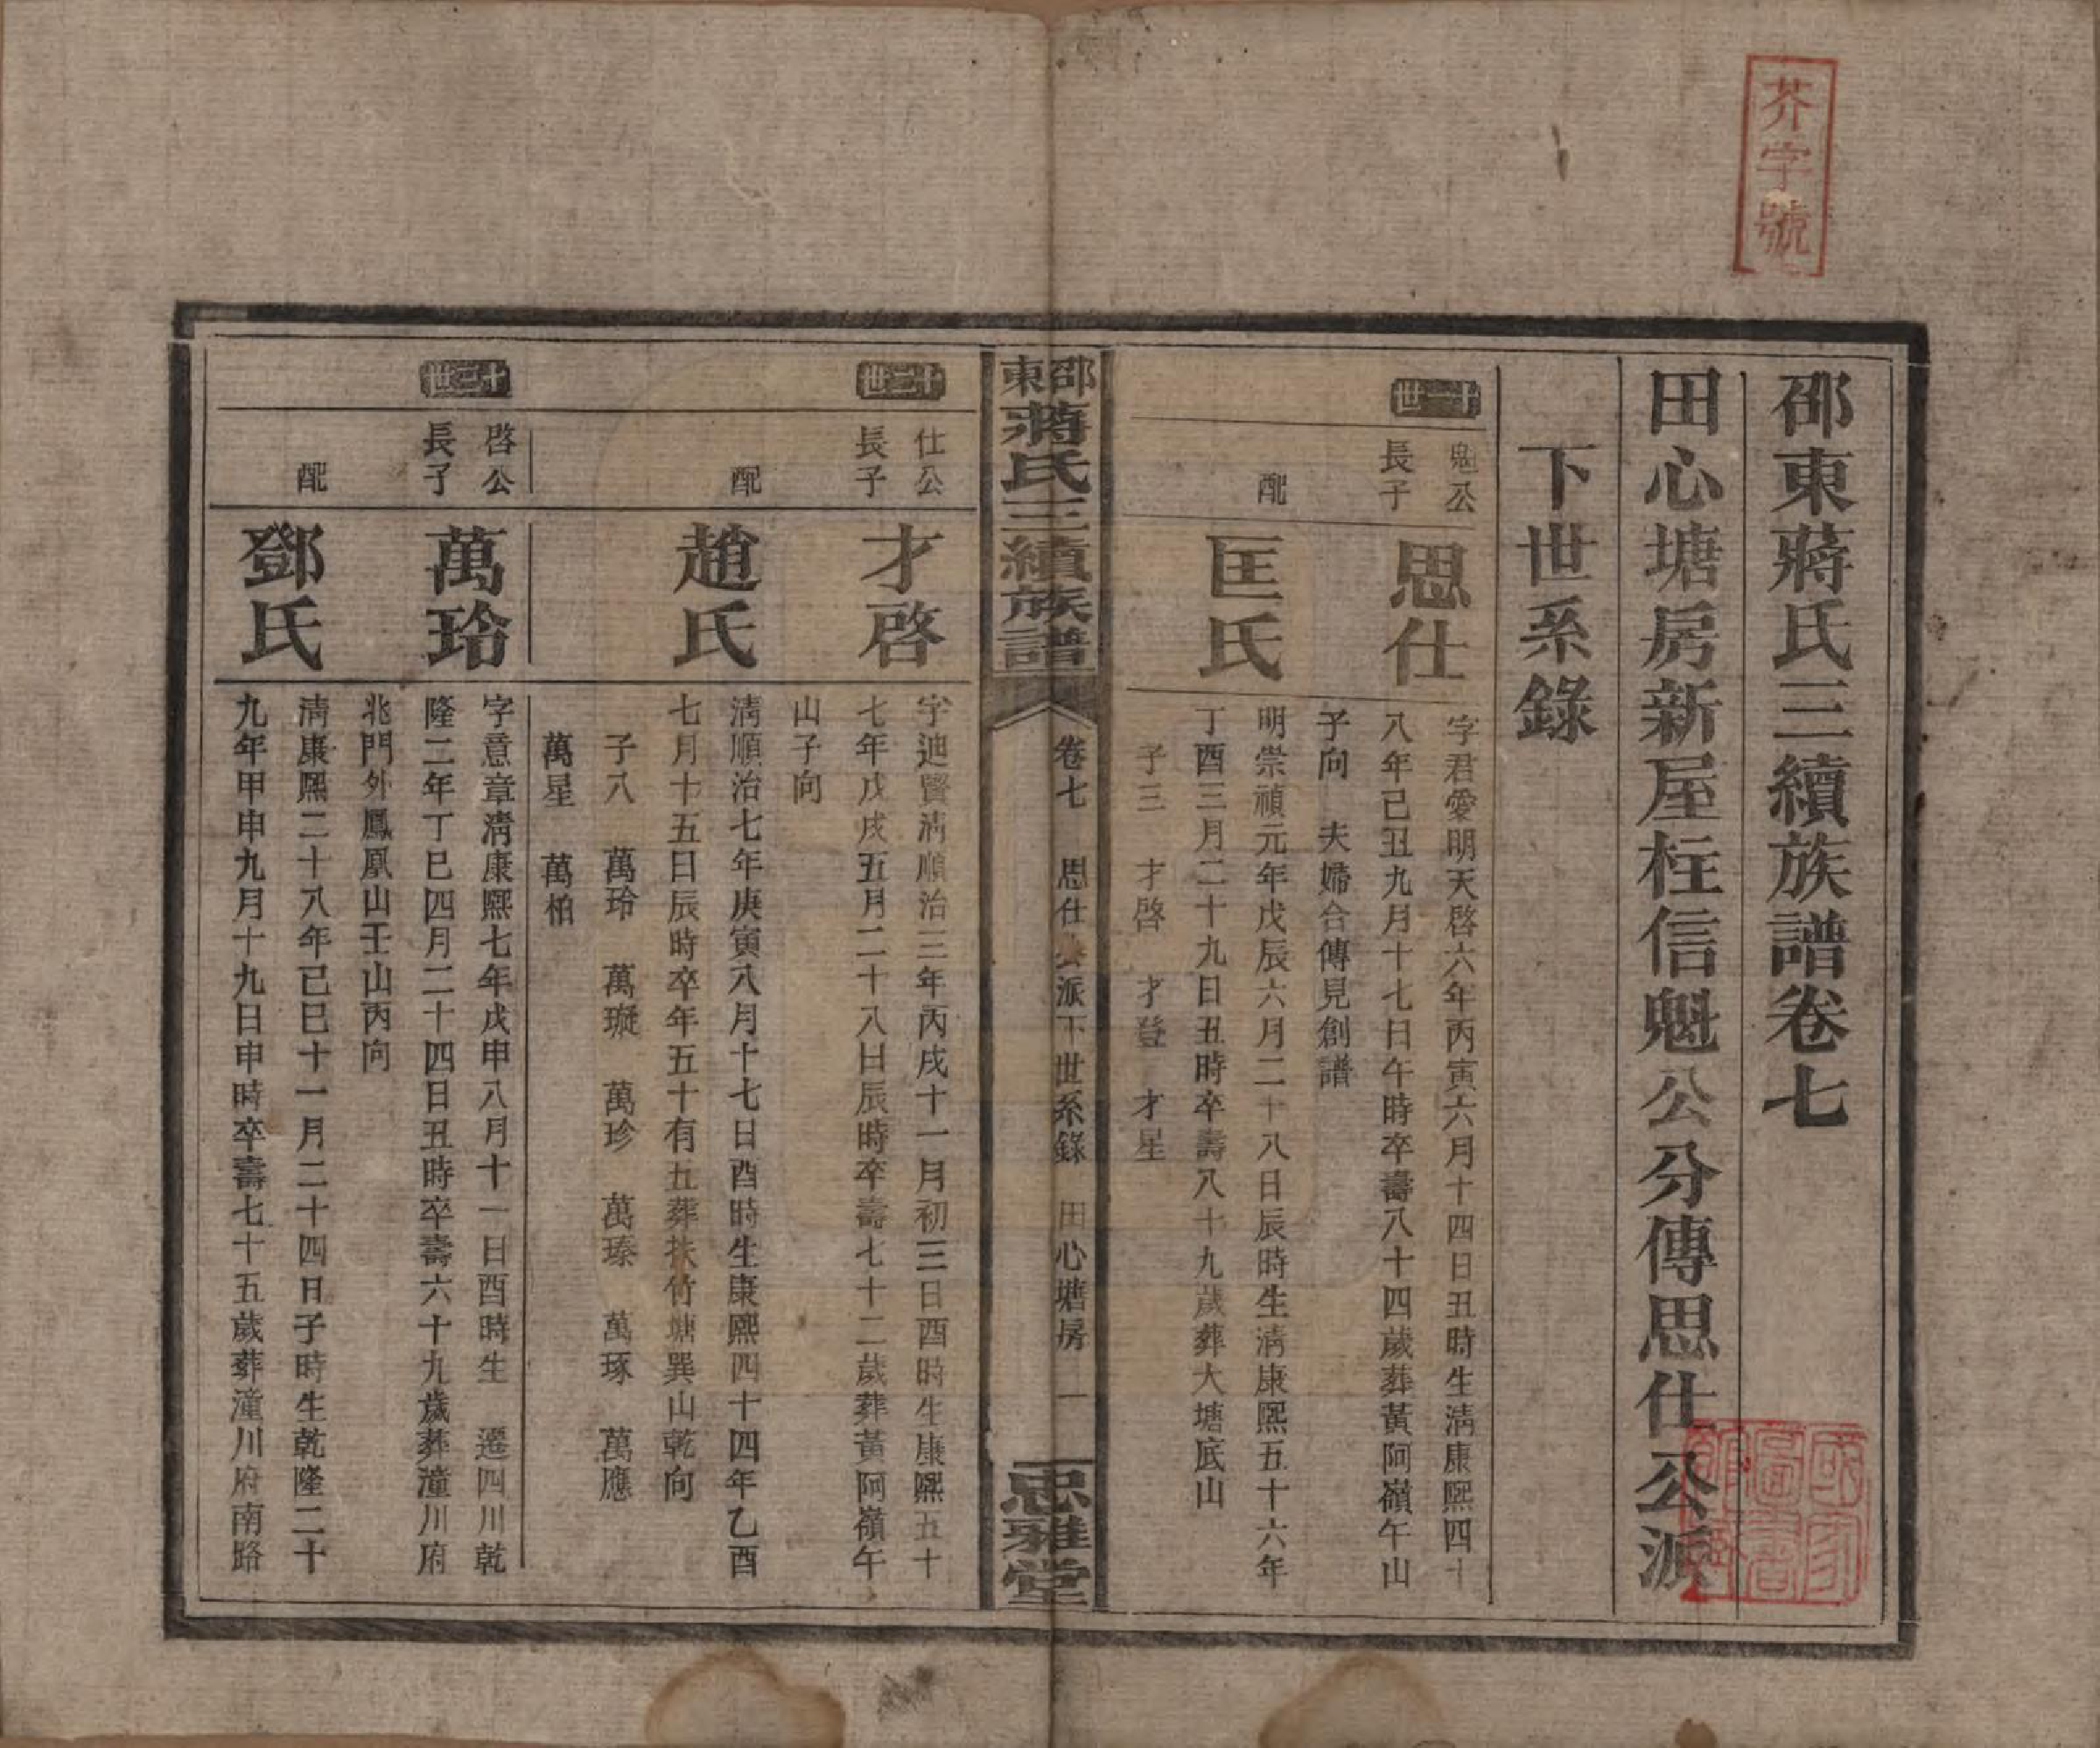 芥字號
邵東蔣氏三續族譜卷七
田心塘房新屋柱信魁公分傳思仕公派
下世系錄
十一世
魁公
長子
思仕
字君愛明天啓六年丙寅六月十四日丑時生淸康熙四十
八年己丑九月十七日午時卒壽八十四歲葬黃阿嶺午山
子向　夫婦合傳見創譜
配
匡氏
明崇禎元年戊辰六月二十八日辰時生淸康熙五十六年
丁酉三月二十九日丑時卒壽八十九歲葬大塘底山
子三　才啓　才登　才星
邵東蔣氏三續族譜
卷七　思仕公派下世系錄　田心塘房　一
忠雅堂
十二世
仕公
長子
才啓
字迪賢淸順治三年丙戌十一月初三日酉時生康熙五十
七年戊戌五月二十八日辰時卒壽七十二歲葬黃阿嶺午
山子向
配
趙氏
淸順治七年庚寅八月十七日酉時生康熙四十四年乙酉
七月十五日辰時卒年五十有五葬扶竹塘巽山乾向
子八　萬玲　萬璇　萬珍　萬瑧　萬琢　萬應
萬星　萬柏
十三世
啓公
長子
萬玲
字意章淸康熙七年戊申八月十一日酉時生　遷四川乾
隆二年丁巳四月二十四日丑時卒壽六十九歲葬潼川府
北門外鳳凰山壬山丙向
配
鄧氏
淸康熙二十八年己巳十一月二十四日子時生乾隆二十
九年甲申九月十九日申時卒壽七十五歲葬潼川府南路